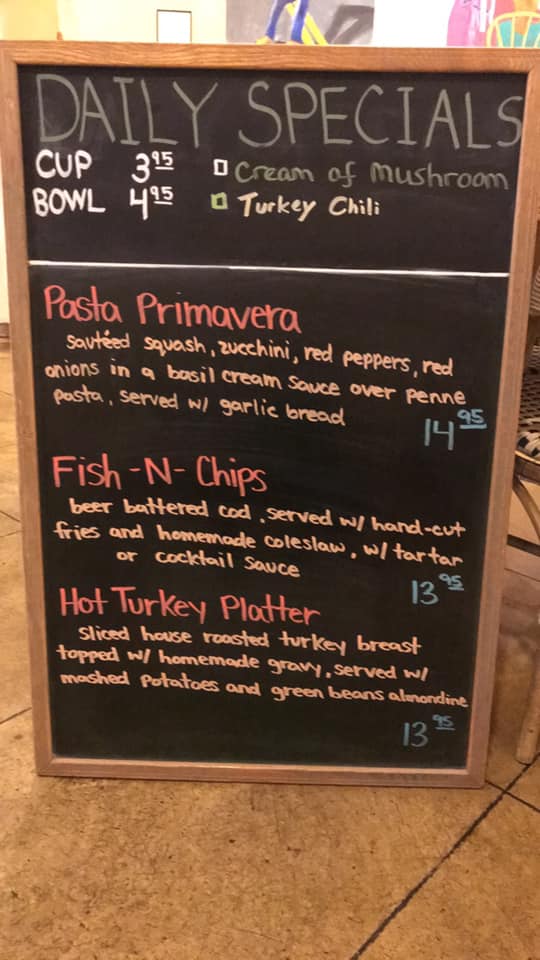 DAILY SPECIALS
CUP 3 95 Cream of Mushroom
BOWL 4 95 Turkey Chili
Pasta Primavera
sautéed squash, zucchini, red peppers, red
onions in a basil cream sauce over penne
pasta, served w/ garlic bread
14 95
Fish-N-Chips
beer battered cod, served w/ hand-cut
fries and homemade coleslaw, w/ tartar
or cocktail sauce
13 95
Hot Turkey Platter
sliced house roasted turkey breast
topped w/ homemade gravy, served w/
mashed potatoes and green beans almondine
13 95